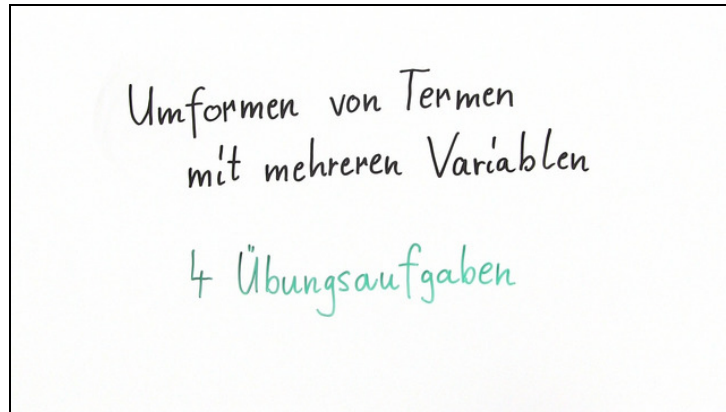 Umformen von Termen
mit mehreren Variablen
4 Übungsaufgaben